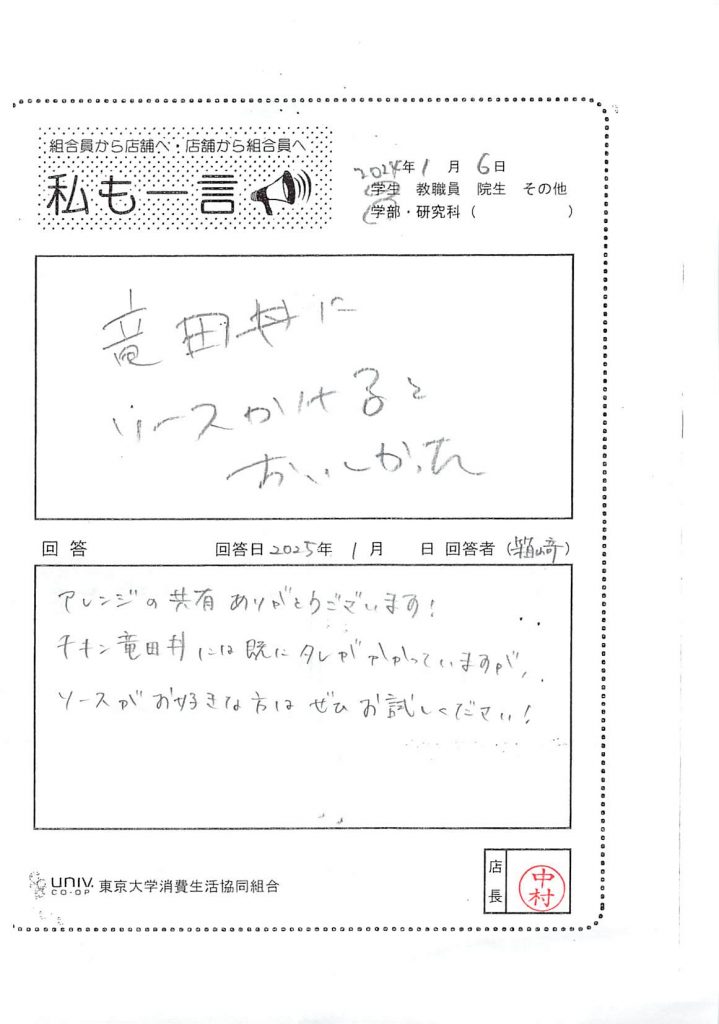 組合員から店舗へ・店舗から組合員へ
私も一言
2024年1月6日
学生 教職員 院生 その他
学部・研究科( )
竜田丼に
ソースかけると
おいしかった
回答 回答日2025年1月 日 回答者(箱崎)
アレンジの共有ありがとうございます!
チキン竜田丼には既にタレがかかっていますが、
ソースがお好きな方はぜひお試しください!
UNIV. CO-OP 東京大学消費生活協同組合
店長
中村